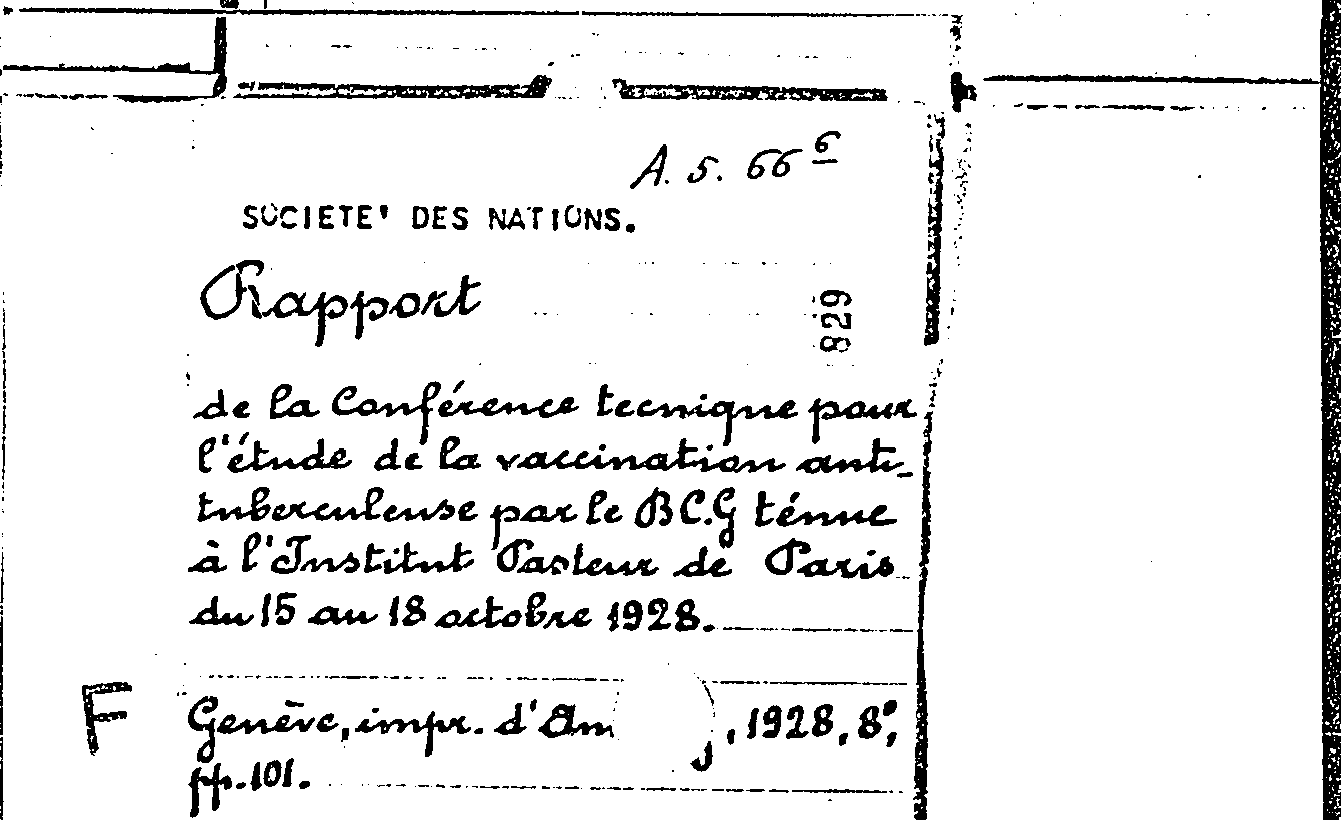 A. 5. 66 6
SOCIETE' DES NATIONS.
Rapport
829
de la Conférence tecnique pour
l'étude de la vaccination anti-
tuberculeuse par le B C.G ténue
à l'Institut Pasteur de Paris
du 15 au 18 octobre 1928.
F
Genève, impr. d'Am , 1928, 8°,
pp. 101.